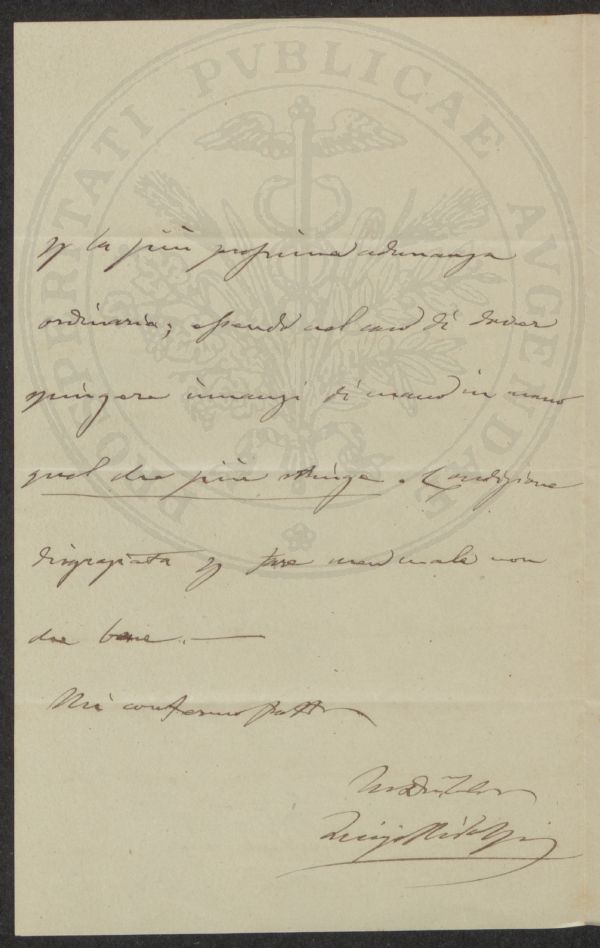 PROSPERITATI PVBLICAE AVGENDAE
p la più prossima adunanza
ordinaria; essendo nel caso di dover
spingere innanzi di mano in mano
quel che più stringe. Condizione
disgraziata p fare men male non
che bene. —
Mi confermo
Luigi Ridolfi